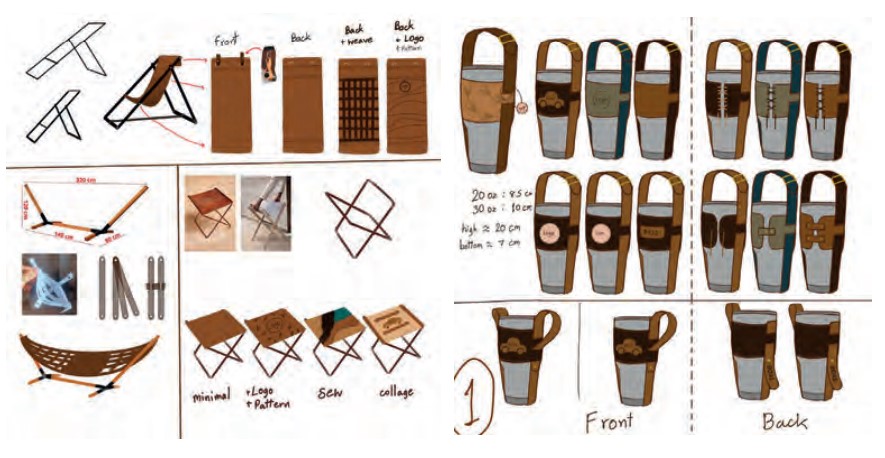 Front
Back
Back
+ weave
Back
+ Logo
+ Pattern
200 cm
120 cm
140 cm
80 cm
minimal
+Logo
+Pattern
Sew
collage
20 oz : 8.5 cm
30 oz : 10 cm
high ≈ 20 cm
bottom ≈ 7 cm
1
Front
Back